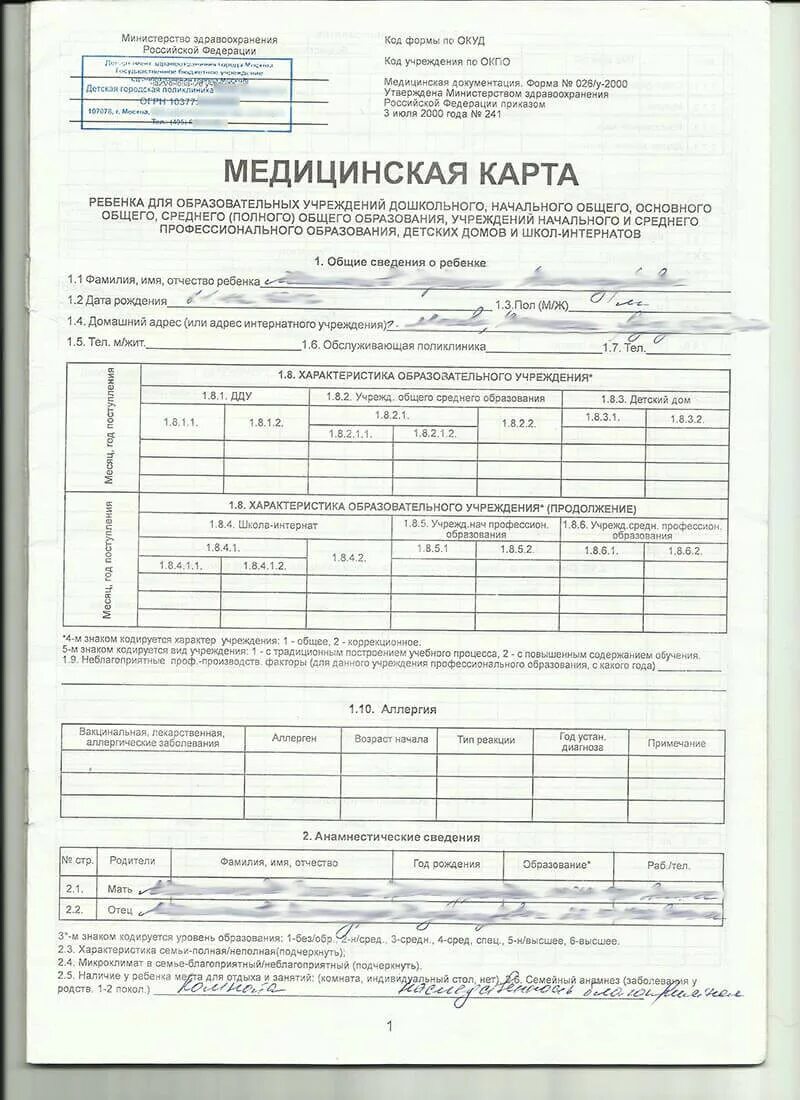 Министерство здравоохранения
Российской Федерации
Департамент здравоохранения города Москвы
Государственное бюджетное учреждение
Детская городская поликлиника
ОГРН 10377
107078, г. Москва,
Тел. (495)
Код формы по ОКУД
Код учреждения по ОКПО
Медицинская документация. Форма № 026/у-2000
Утверждена Министерством здравоохранения
Российской Федерации приказом
3 июля 2000 года № 241
МЕДИЦИНСКАЯ КАРТА
РЕБЕНКА ДЛЯ ОБРАЗОВАТЕЛЬНЫХ УЧРЕЖДЕНИЙ ДОШКОЛЬНОГО, НАЧАЛЬНОГО ОБЩЕГО, ОСНОВНОГО
ОБЩЕГО, СРЕДНЕГО (ПОЛНОГО) ОБЩЕГО ОБРАЗОВАНИЯ, УЧРЕЖДЕНИЙ НАЧАЛЬНОГО И СРЕДНЕГО
ПРОФЕССИОНАЛЬНОГО ОБРАЗОВАНИЯ, ДЕТСКИХ ДОМОВ И ШКОЛ-ИНТЕРНАТОВ
1. Общие сведения о ребенке
1.1 Фамилия, имя, отчество ребенка
1.2 Дата рождения 1.3.Пол (М/Ж)
1.4. Домашний адрес (или адрес интернатного учреждения)
1.5. Тел. м/жит. 1.6. Обслуживающая поликлиника 1.7. Тел.
Месяц, год поступления
1.8. ХАРАКТЕРИСТИКА ОБРАЗОВАТЕЛЬНОГО УЧРЕЖДЕНИЯ*
1.8.1. ДДУ 1.8.2. Учрежд. общего среднего образования 1.8.3. Детский дом
1.8.1.1. 1.8.1.2. 1.8.2.1. 1.8.2.2. 1.8.3.1. 1.8.3.2.
1.8.2.1.1. 1.8.2.1.2.
Месяц, год поступления
1.8. ХАРАКТЕРИСТИКА ОБРАЗОВАТЕЛЬНОГО УЧРЕЖДЕНИЯ* (ПРОДОЛЖЕНИЕ)
1.8.4. Школа-интернат 1.8.5. Учрежд.нач профессион. образования 1.8.6. Учрежд.средн. профессион. образования
1.8.4.1. 1.8.4.2. 1.8.5.1 1.8.5.2. 1.8.6.1. 1.8.6.2.
1.8.4.1.1. 1.8.4.1.2.
*4-м знаком кодируется характер учреждения: 1 - общее, 2 - коррекционное.
5-м знаком кодируется вид учреждения: 1 - с традиционным построением учебного процесса, 2 - с повышенным содержанием обучения.
1.9. Неблагоприятные проф.-производств. факторы (для данного учреждения профессионального образования, с какого года)
1.10. Аллергия
Вакцинальная, лекарственная, аллергические заболевания Аллерген Возраст начала Тип реакции Год устан. диагноза Примечание
2. Анамнестические сведения
№ стр. Родители Фамилия, имя, отчество Год рождения Образование* Раб./тел.
2.1. Мать
2.2. Отец
3*-м знаком кодируется уровень образования: 1-без/обр., 2-н/сред., 3-средн., 4-сред, спец., 5-н/высшее, 6-высшее.
2.3. Характеристика семьи-полная/неполная(подчеркнуть);
2.4. Микроклимат в семье-благоприятный/неблагоприятный (подчеркнуть).
2.5. Наличие у ребенка места для отдыха и занятий: (комната, индивидуальный стол, нет). 2.6. Семейный анамнез (заболевания у
родств. 1-2 покол.) комната наследственность
1